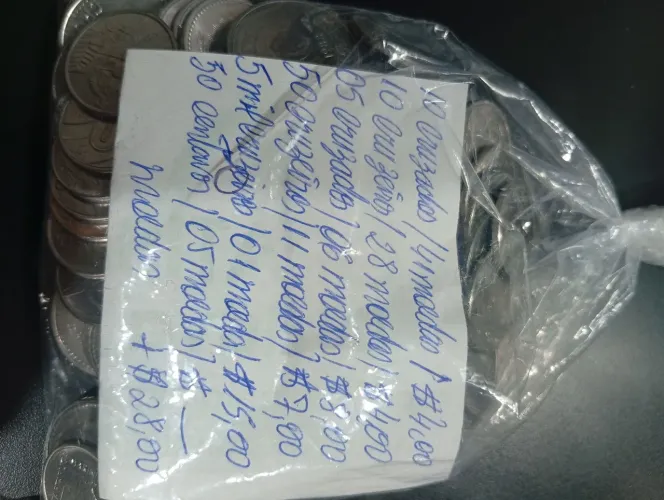 10 cruzado / 4 moedas / $4,00
10 cruzeiro / 28 moedas / $4,00
05 cruzado / 06 moedas / $3,00
50 cruzeiro / 11 moedas / $7,00
5 mil cruzeiro / 01 moeda / $15,00
50 centavos / 05 moedas / $ —
moedas + $28,00